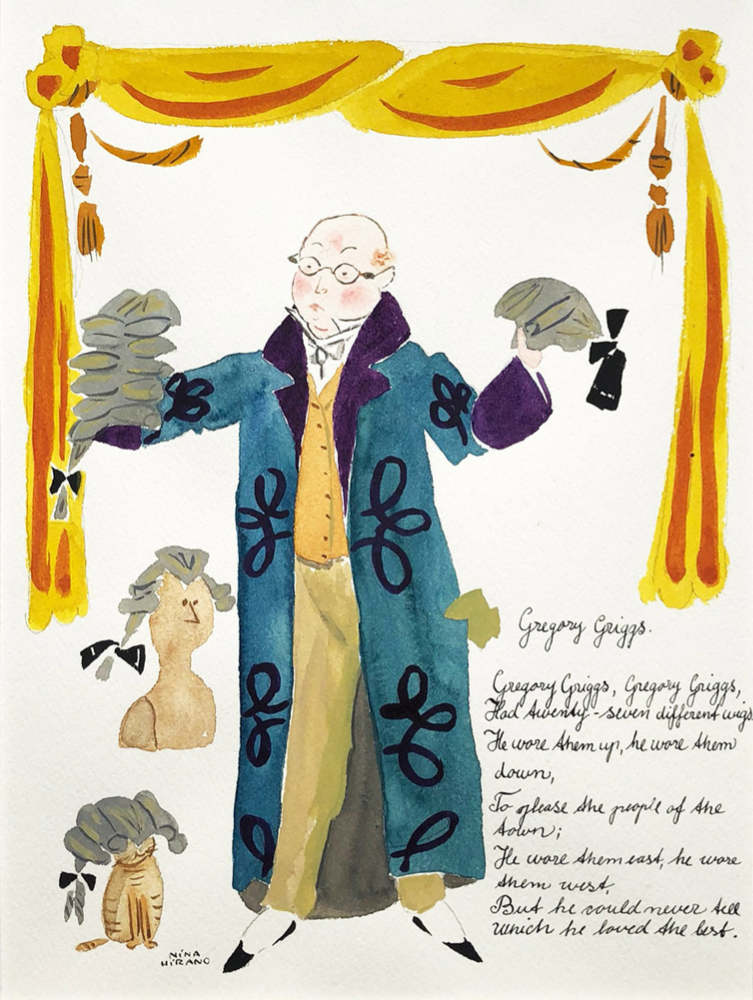 Gregory Griggs.
Gregory Griggs, Gregory Griggs,
Had twenty-seven different wigs.
He wore them up, he wore them
down,
To please the people of the
town;
He wore them east, he wore
them west,
But he could never tell
which he loved the best.
NINA
HIRANO